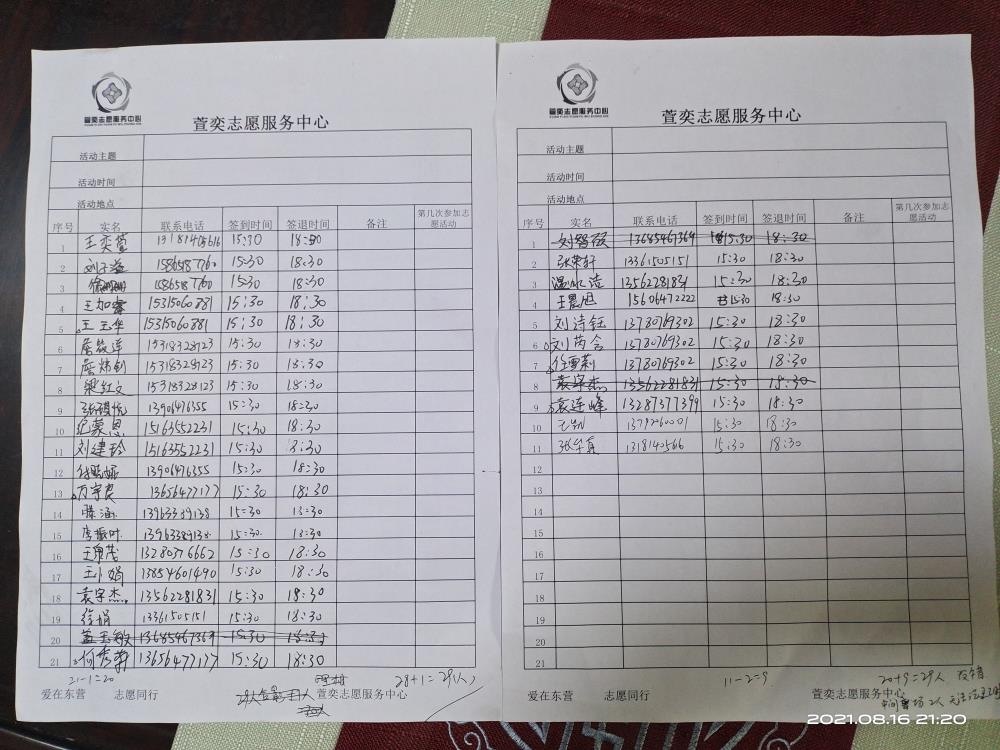 萱奕志愿服务中心
萱奕志愿服务中心
活动主题
活动时间
活动地点
序号 实名 联系电话 签到时间 签退时间 备注 第几次参加志愿活动
1 王奕萱 15:30 18:30
2 15:30 18:30
3 15:30 18:30
4 王如睿 15315060881 15:30 18:30
5 王玉华 15315060881 15:30 18:30
6 15318328123 15:30 18:30
7 15318328123 15:30 18:30
8 梁红文 15318328123 15:30 18:30
9 13906476355 15:30 18:30
10 纪蒙恩 15163552231 15:30 18:30
11 刘建玲 15163552231 15:30 18:30
12 13906476355 15:30 18:30
13 万宇良 13656477177 15:30 18:30
14 15:30
15 李振时 15:30
16 王康茂 13280376662 15:30 18:30
17 王小娟 13854601490 15:30 18:30
18 袁宇杰 13562281831 15:30 18:30
19 徐娟 13361505151 15:30 18:30
20 孟玉敏 13685467369 15:30 18:30
21 何秀莉 13656477177 15:30 18:30
21-1=20 28+1=29(人)
爱在东营 志愿同行 萱奕志愿服务中心
萱奕志愿服务中心
萱奕志愿服务中心
活动主题
活动时间
活动地点
序号 实名 联系电话 签到时间 签退时间 备注 第几次参加志愿活动
1 刘智硕 13685467369 15:30 18:30
2 张荣轩 13361505151 15:30 18:30
3 温冰洁 13562281831 15:30 18:30
4 王晨旭 15606472222 15:30 18:30
5 刘诗钰 13780769302 15:30 18:30
6 刘芮含 13780769302 15:30 18:30
7 任雪莉 13780769302 15:30 18:30
8 袁宇杰 13562281831 15:30 18:30
9 袁连峰 13287377399 15:30 18:30
10 15:30 18:30
11 1318140566 15:30 18:30
12
13
14
15
16
17
18
19
20
21
11-2=9 20+9=29人
爱在东营 志愿同行 萱奕志愿服务中心
2021.08.16 21:20